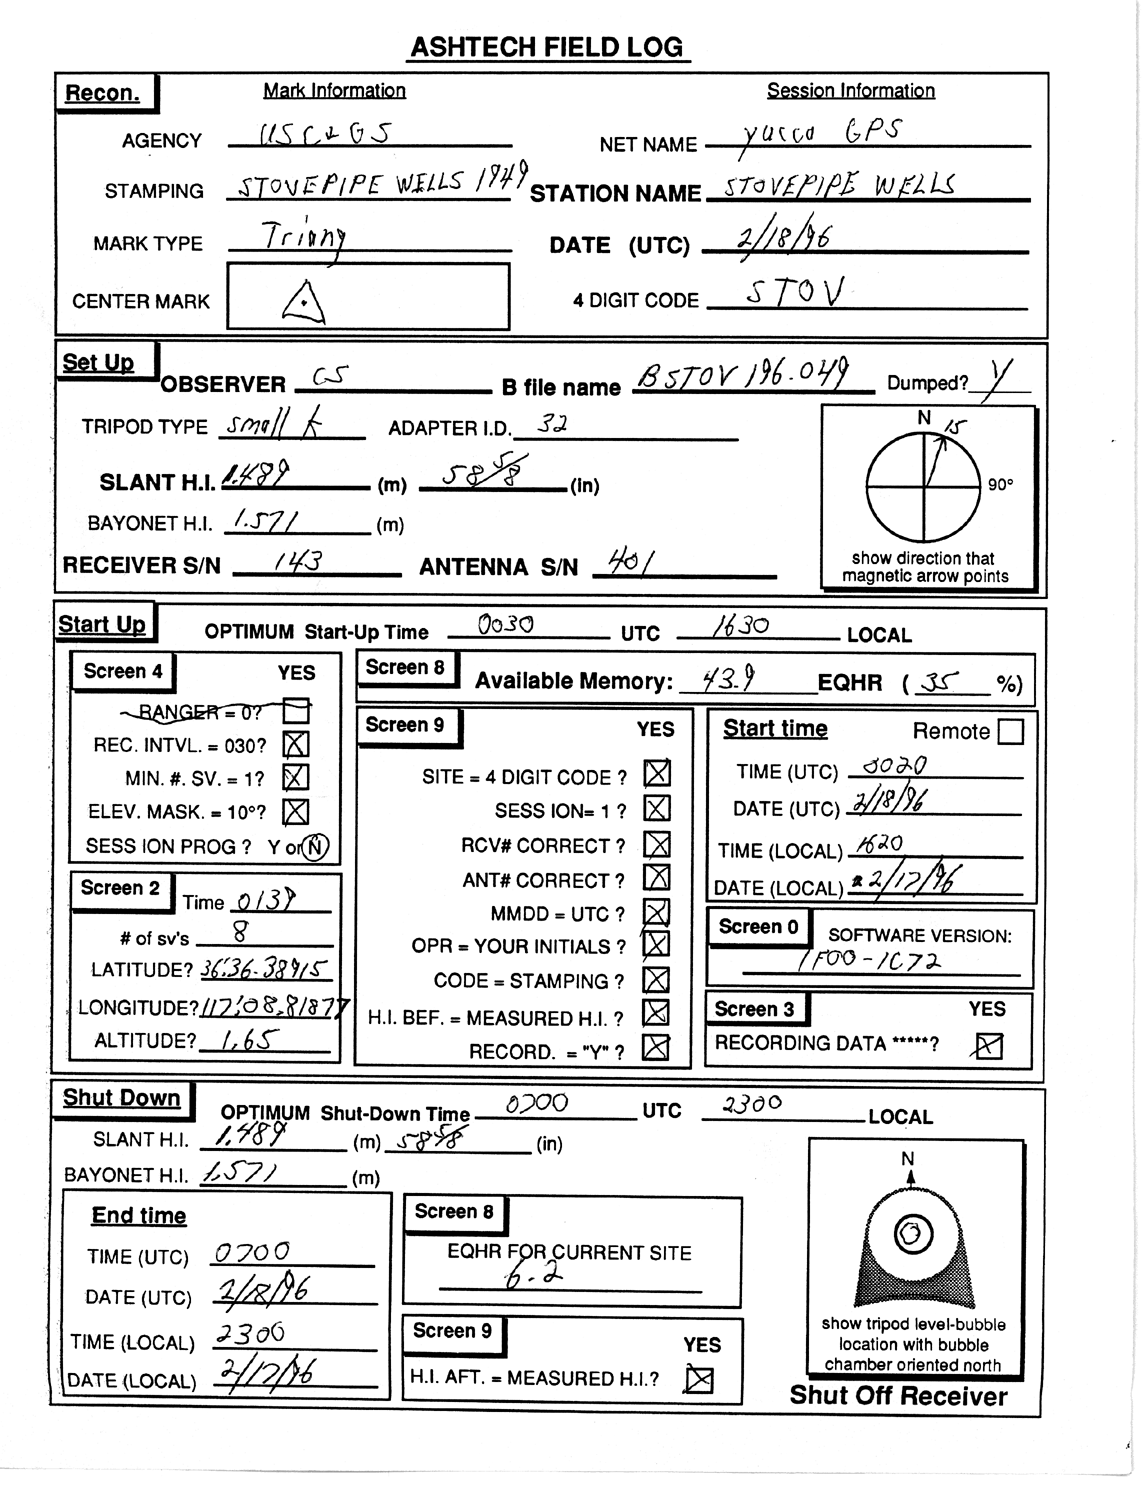 ASHTECH FIELD LOG
Recon. Mark Information Session Information
AGENCY USC&GS NET NAME yucca GPS
STAMPING STOVEPIPE WELLS 1949 STATION NAME STOVEPIPE WELLS
MARK TYPE Triang DATE (UTC) 2/18/96
CENTER MARK 4 DIGIT CODE STOV
Set Up
OBSERVER CS B file name BSTOV196.049 Dumped? Y
TRIPOD TYPE small ADAPTER I.D. 32
N 15
SLANT H.I. 1.489 (m) 58 5/8 (in) 90°
BAYONET H.I. 1.571 (m)
RECEIVER S/N 143 ANTENNA S/N 401
show direction that
magnetic arrow points
Start Up OPTIMUM Start-Up Time 0030 UTC 1630 LOCAL
Screen 4 YES
RANGER = 0?
REC. INTVL. = 030?
MIN. #. SV. = 1?
ELEV. MASK. = 10°?
SESS ION PROG ? Y or N
Screen 2 Time 0139
# of sv's 8
LATITUDE? 36:36.38915
LONGITUDE? 117:08.81877
ALTITUDE? 1.65
Screen 8 Available Memory: 43.9 EQHR ( 35 %)
Screen 9 YES
SITE = 4 DIGIT CODE ?
SESS ION= 1 ?
RCV# CORRECT ?
ANT# CORRECT ?
MMDD = UTC ?
OPR = YOUR INITIALS ?
CODE = STAMPING ?
H.I. BEF. = MEASURED H.I. ?
RECORD. = "Y" ?
Start time Remote
TIME (UTC) 0020
DATE (UTC) 2/18/96
TIME (LOCAL) 1620
DATE (LOCAL) 2/17/96
Screen 0 SOFTWARE VERSION:
1F00-1C72
Screen 3 YES
RECORDING DATA *****?
Shut Down OPTIMUM Shut-Down Time 0700 UTC 2300 LOCAL
SLANT H.I. 1.489 (m) 58 5/8 (in)
BAYONET H.I. 1.571 (m)
End time
TIME (UTC) 0700
DATE (UTC) 2/18/96
TIME (LOCAL) 2300
DATE (LOCAL) 2/17/96
Screen 8
EQHR FOR CURRENT SITE
6.2
Screen 9 YES
H.I. AFT. = MEASURED H.I.?
N
show tripod level-bubble
location with bubble
chamber oriented north
Shut Off Receiver